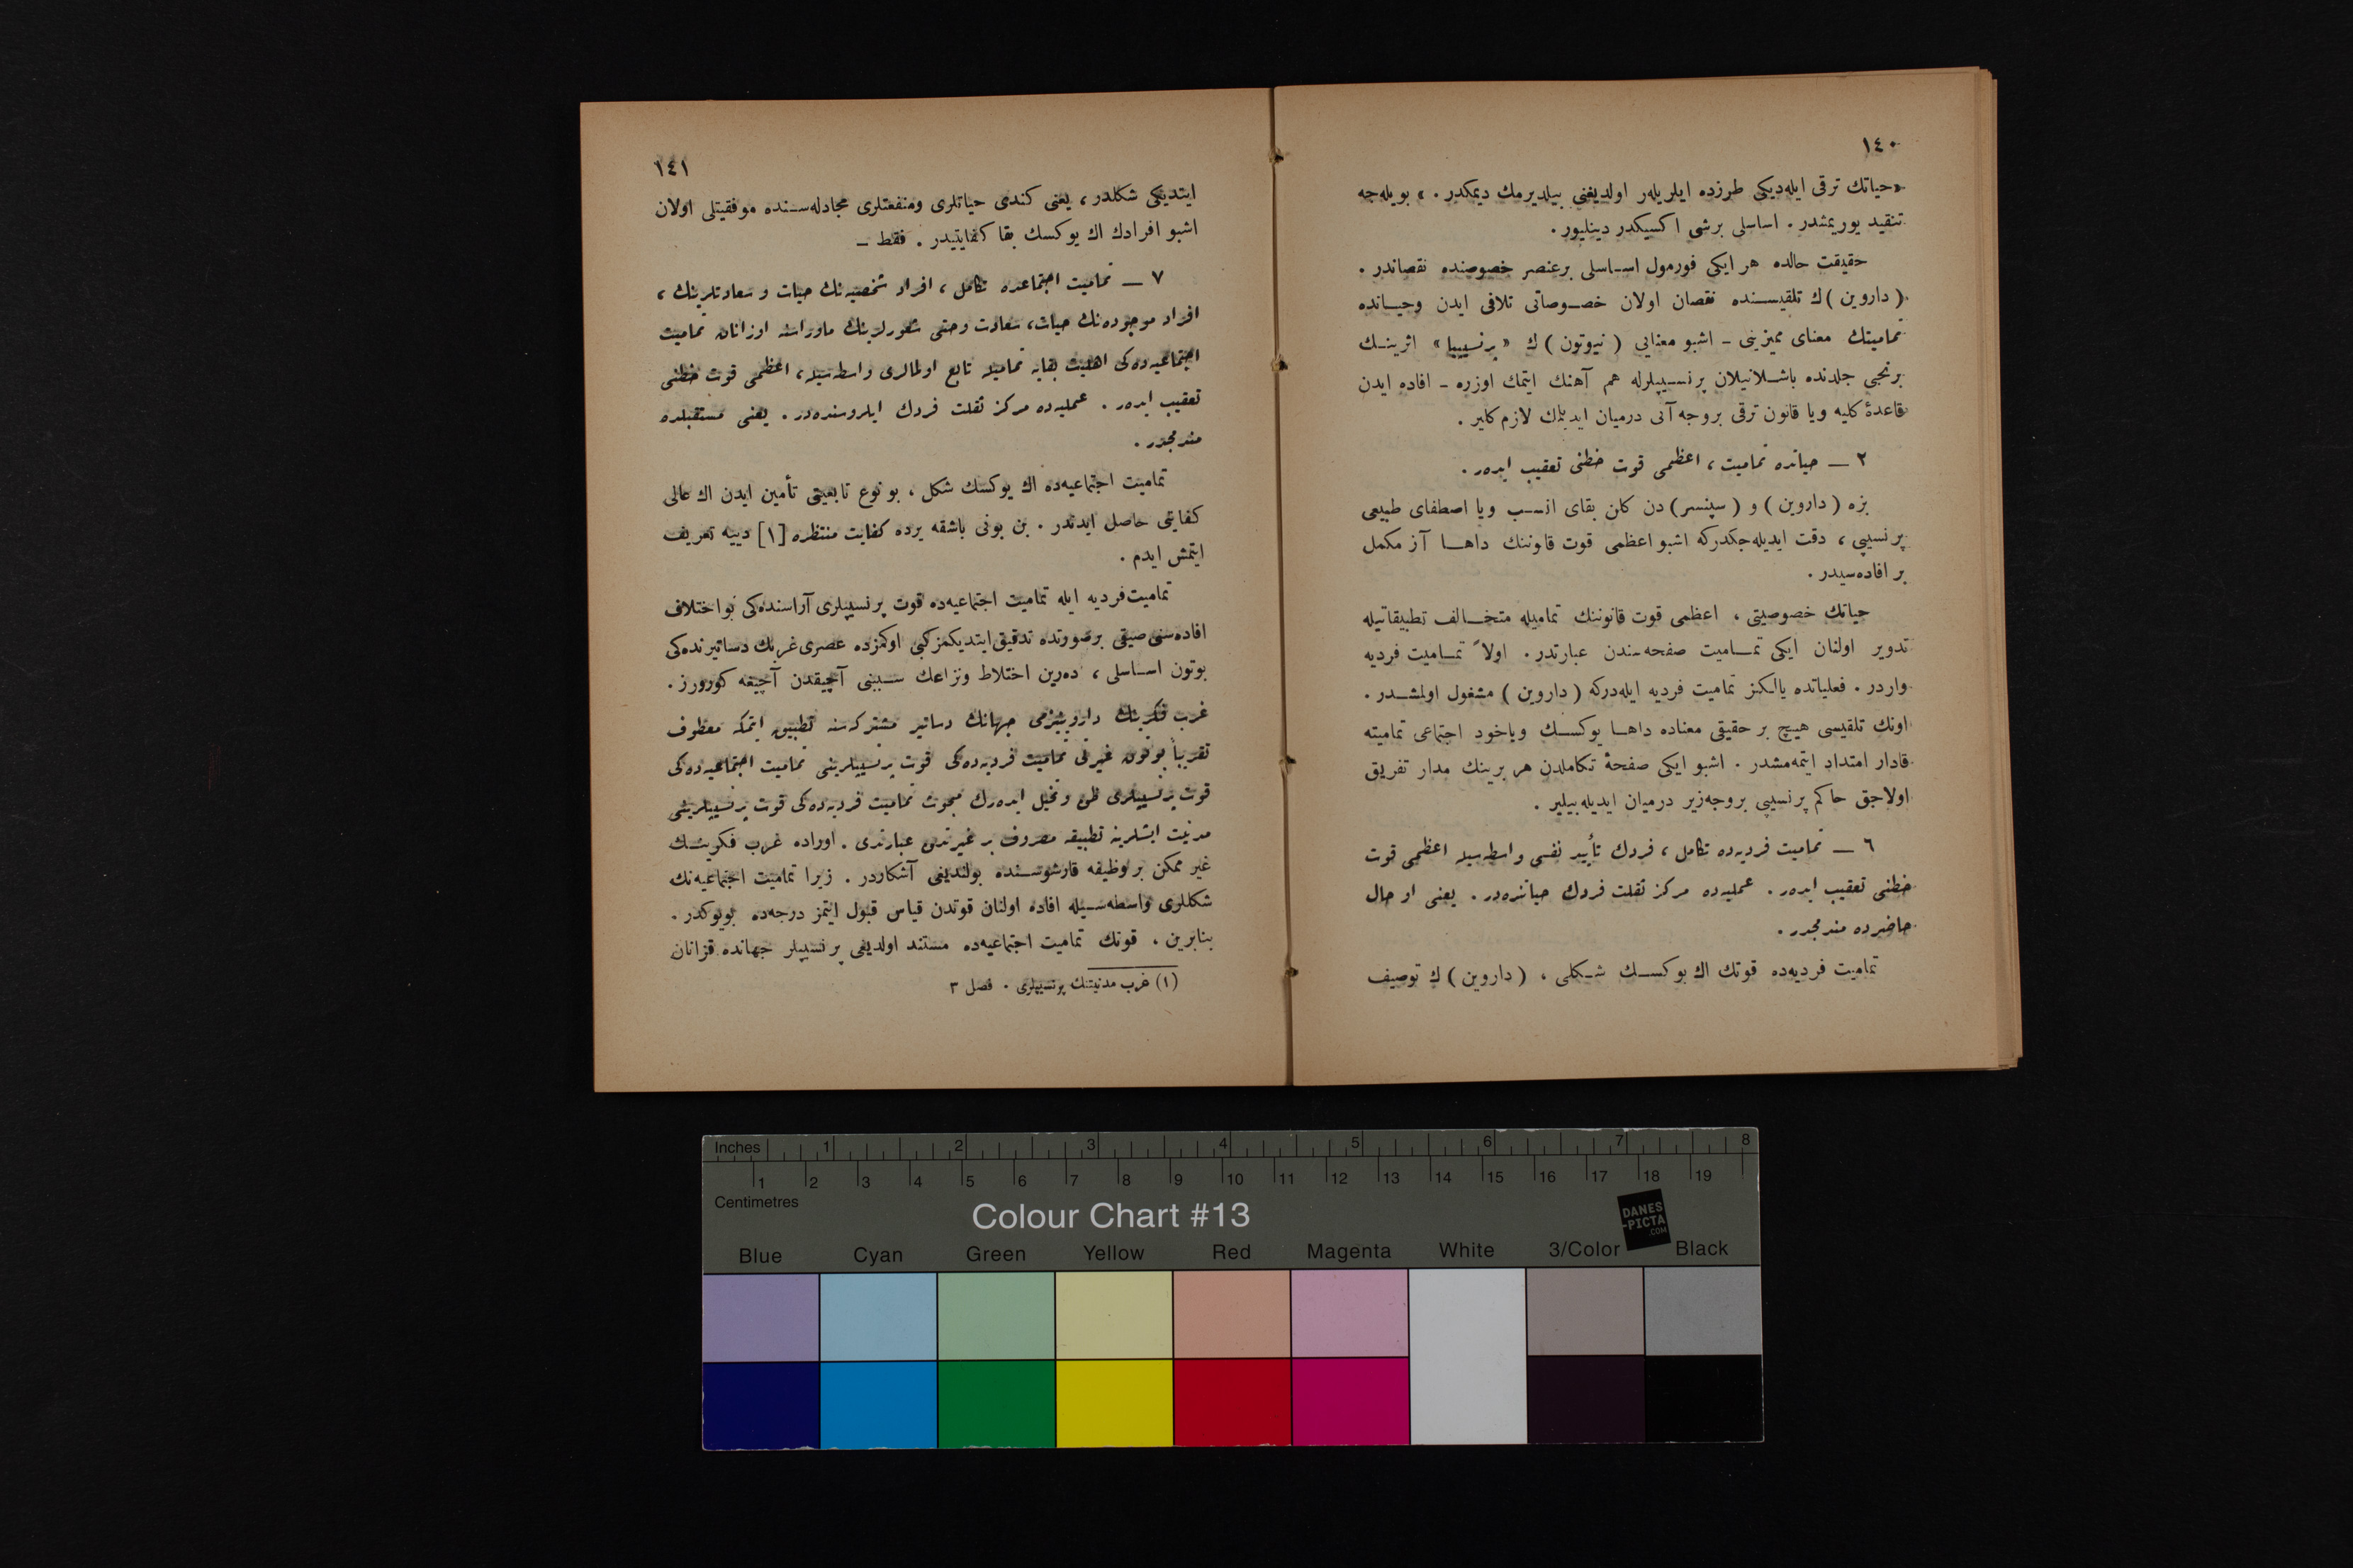 ١٤٠
«حیاتك ترقی ایله‌دیكی طرزده ایلریله‌ر اولدیغنی بیلدیرمك دیمكدر . » بویله‌جه
تنقید یوریمشدر . اساسلی برشی اكسیكدر دینلیور .
حقیقت حالده هر ایكی فورمول اساسلی برعنصر خصوصنده نقصاندر .
( داروین )ك تلقیسنده نقصان اولان خصوصاتی تلافی ایدن وحیاتده
تمامیتك معنای ممیزینی - اشبو معنایی ( نیوتون )ك « پرنسیپیا » اثرینك
برنجی جلدنده باشلانیلان پرنسیپلرله هم آهنك ایتمك اوزره - افاده ایدن
قاعدهٔ كلیه ویا قانون ترقی بروجه آتی درمیان ایدیلمك لازم كلیر .
٢ — حیاتده تمامیت ، اعظمی قوت خطنی تعقیب ایده‌ر .
بزه ( داروین ) و ( سپنسر ) دن كلن بقای انسب ویا اصطفای طبیعی
پرنسیپی ، دقت ایدیله‌جكدركه اشبو اعظمی قوت قانوننك داها آز مكمل
بر افاده‌سیدر .
حیاتك خصوصیتی ، اعظمی قوت قانوننك تمامیله متخالف تطبیقاتیله
تدویر اولنان ایكی تمامیت صفحه‌سندن عبارتدر . اولاً تمامیت فردیه
واردر . فعلیاتده یالكز تمامیت فردیه ایله‌دركه ( داروین ) مشغول اولمشدر .
اونك تلقیسی هیچ بر حقیقی معناده داها یوكسك ویاخود اجتماعی تمامیته
قادار امتداد ایتمه‌مشدر . اشبو ایكی صفحهٔ تكاملدن هر برینك مدار تفریق
اولاجق حاكم پرنسیپی بروجه‌زیر درمیان ایدیله‌بیلیر .
٦ — تمامیت فردیه‌ده تكامل ، فردك تأیید نفسی واسطه‌سیله اعظمی قوت
خطنی تعقیب ایده‌ر . عملیه‌ده مركز ثقلت فردك حیاتنده‌در . یعنی او حال
حاضرده مندمجدر .
تمامیت فردیه‌ده قوتك اك یوكسك شكلی ، ( داروین )ك توصیف
١٤١
ایتدیكی شكلدر ، یعنی كندی حیاتلری ومنفعتلری مجادله‌سنده موفقیتلی اولان
اشبو افرادك اك یوكسك بقا كفایتیدر . فقط –
٧ — تمامیت اجتماعیه‌ده تكامل ، افراد شخصیه‌نك حیات و سعادتلرینك ،
افراد موجوده‌نك حیات ، سعادت وحتی شعورلرینك ماوراسنه اوزانان تمامیت
اجتماعیه‌ده‌كی اهلیت بقایه تمامیله تابع اولمالری واسطه‌سیله ، اعظمی قوت خطنی
تعقیب ایده‌ر . عملیه‌ده مركز ثقلت فردك ایلروسنده‌در . یعنی مستقبلده
مندمجدر .
تمامیت اجتماعیه‌ده اك یوكسك شكل ، بو نوع تابعیتی تأمین ایدن اك عالی
كفایتی حاصل ایدندر . بن بونی باشقه یرده كفایت منتظره [١] دییه تعریف
ایتمش ایدم .
تمامیت‌فردیه ایله تمامیت اجتماعیه‌ده قوت پرنسیپلری آراسنده‌كی بواختلاف
افاده‌سنی صیقی برصورتده تدقیق ایتدیكمز كبی اوكمزده عصری غربك دساتیرنده‌كی
بوتون اساسلی ، ده‌رین اختلاط ونزاعك سببنی آچیقدن آچیغه كورورز .
غرب فكرینك داروینیزمی جهانك دساتیر مشتركه‌سنه تطبیق ایتمكه معطوف
تقریباً بوتون غیرتی تمامیت فردیه‌ده‌كی قوت پرنسیپلرینی تمامیت اجتماعیه‌ده‌كی
قوت پرنسیپلری ظن وتخیل ایده‌رك مبحوث تمامیت فردیه‌ده‌كی قوت پرنسیپلرینی
مدنیت ایشلرینه تطبیقه مصروف بر غیرتدن عبارتدی . اوراده غرب فكرینك
غیر ممكن بروظیفه قارشوسنده بولندیغی آشكاردر . زیرا تمامیت اجتماعیه‌نك
شكللری واسطه‌سیله افاده اولنان قوتدن قیاس قبول ایتمز درجه‌ده بویوكدر .
بنابرین ، قوتك تمامیت اجتماعیه‌ده مستند اولدیغی پرنسیپلر جهانده قزانان
(١) غرب مدنیتنك پرنسیپلری . فصل ٣
Inches 1 2 3 4 5 6 7 8
1 2 3 4 5 6 7 8 9 10 11 12 13 14 15 16 17 18 19
Centimetres
Colour Chart #13
DANES
-PICTA
.COM
Blue Cyan Green Yellow Red Magenta White 3/Color Black